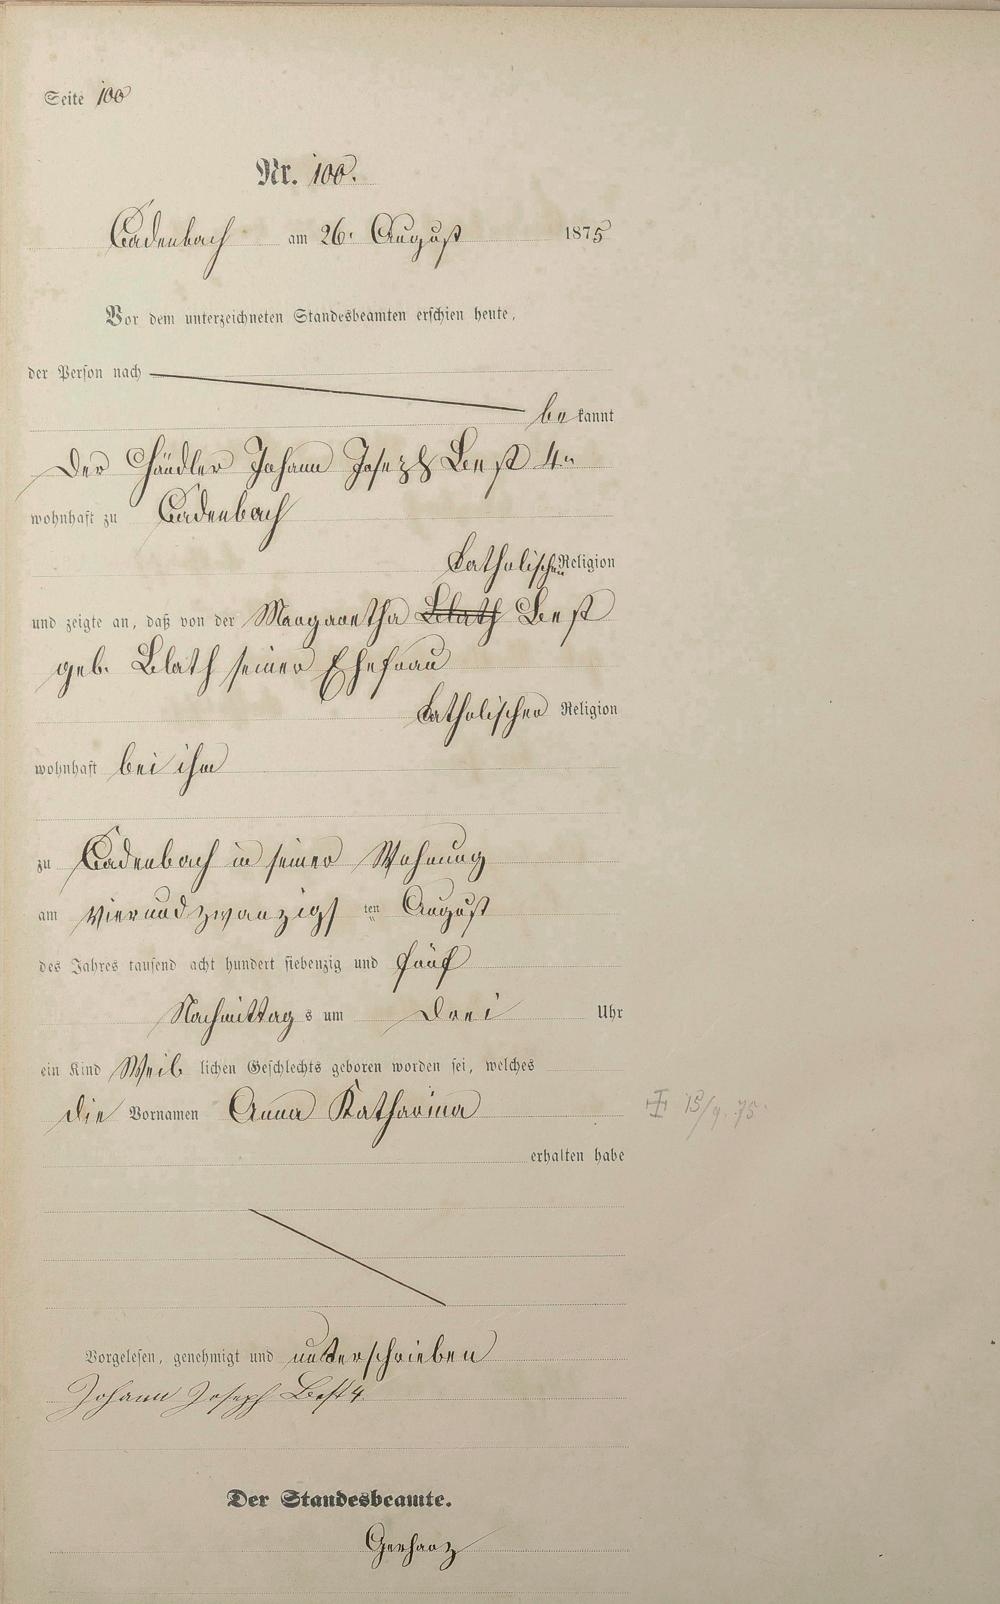 Seite 100
Nr. 100.
Cadenbach am 26. August 1875
Vor dem unterzeichneten Standesbeamten erschien heute,
der Person nach
be kannt
Der Händler Johann Joseph Best 4n
wohnhaft zu Cadenbach
katholischen Religion
und zeigte an, daß von der Margaretha Blath Best
geb. Blath seiner Ehefrau
katholischer Religion
wohnhaft bei ihm
zu Cadenbach in seiner Wohnung
am vierundzwanzigs ten August
des Jahres tausend acht hundert siebenzig und fünf
Nachmittag s um drei Uhr
ein Kind Weib lichen Geschlechts geboren worden sei, welches
die Vornamen Anna Katharina
✝ 15/9. 75.
erhalten habe
Vorgelesen, genehmigt und unterschrieben
Johann Joseph Best 4
Der Standesbeamte.
Gerharz